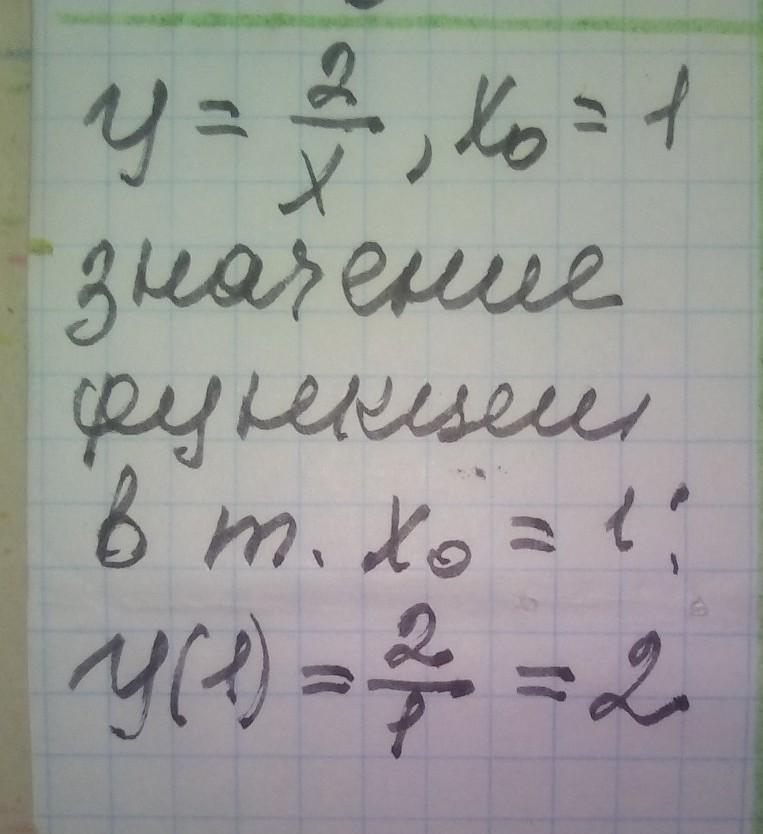 y = 2/x, x₀ = 1
значение
функции
в т. x₀ = 1:
y(1) = 2/1 = 2